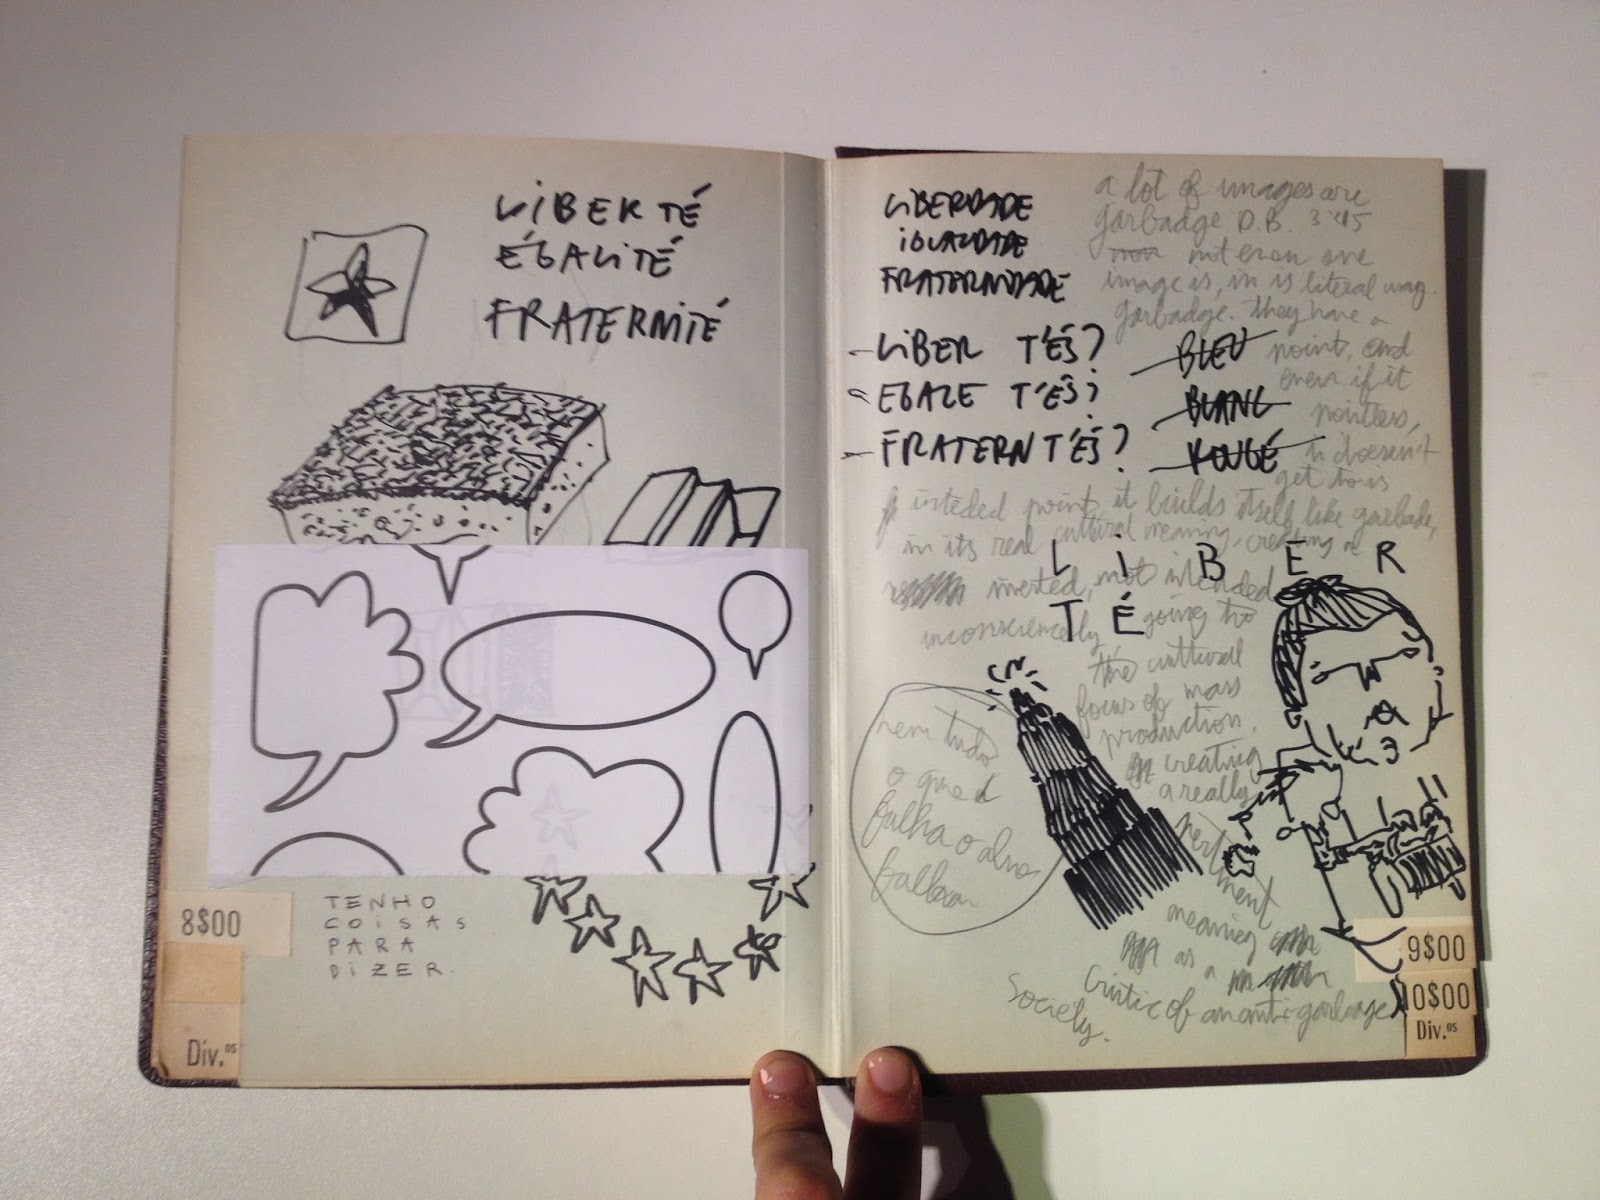 LIBERTÉ
ÉGALITÉ
FRATERNITÉ
8$00
TENHO
COISAS
PARA
DIZER.
Div.os
LIBERDADE
IGUALDADE
FRATERNIDADE
LIBER T'ÉS?
EGALE T'ÉS?
FRATERN T'ÉS?
BLEU
BLANC
ROUGÉ
a lot of images are
garbadge D.B. 3:45
not even one
image is, in is literal way.
garbadge. they have a
point, and
even if it
pointless,
it doesn't
get to is
inteded point, it builds itself like garbadge,
in its real cultural meaning, creating a
inverted, not intended
inconsciencely, going to
the cultural
focus of mass
production.
creating
a really
pertinent
meaning
as a
Critic of an anti-garbage
Society.
LIBER
TÉ
nem tudo
o que
falha o alvo
falhou
9$00
10$00
Div.os